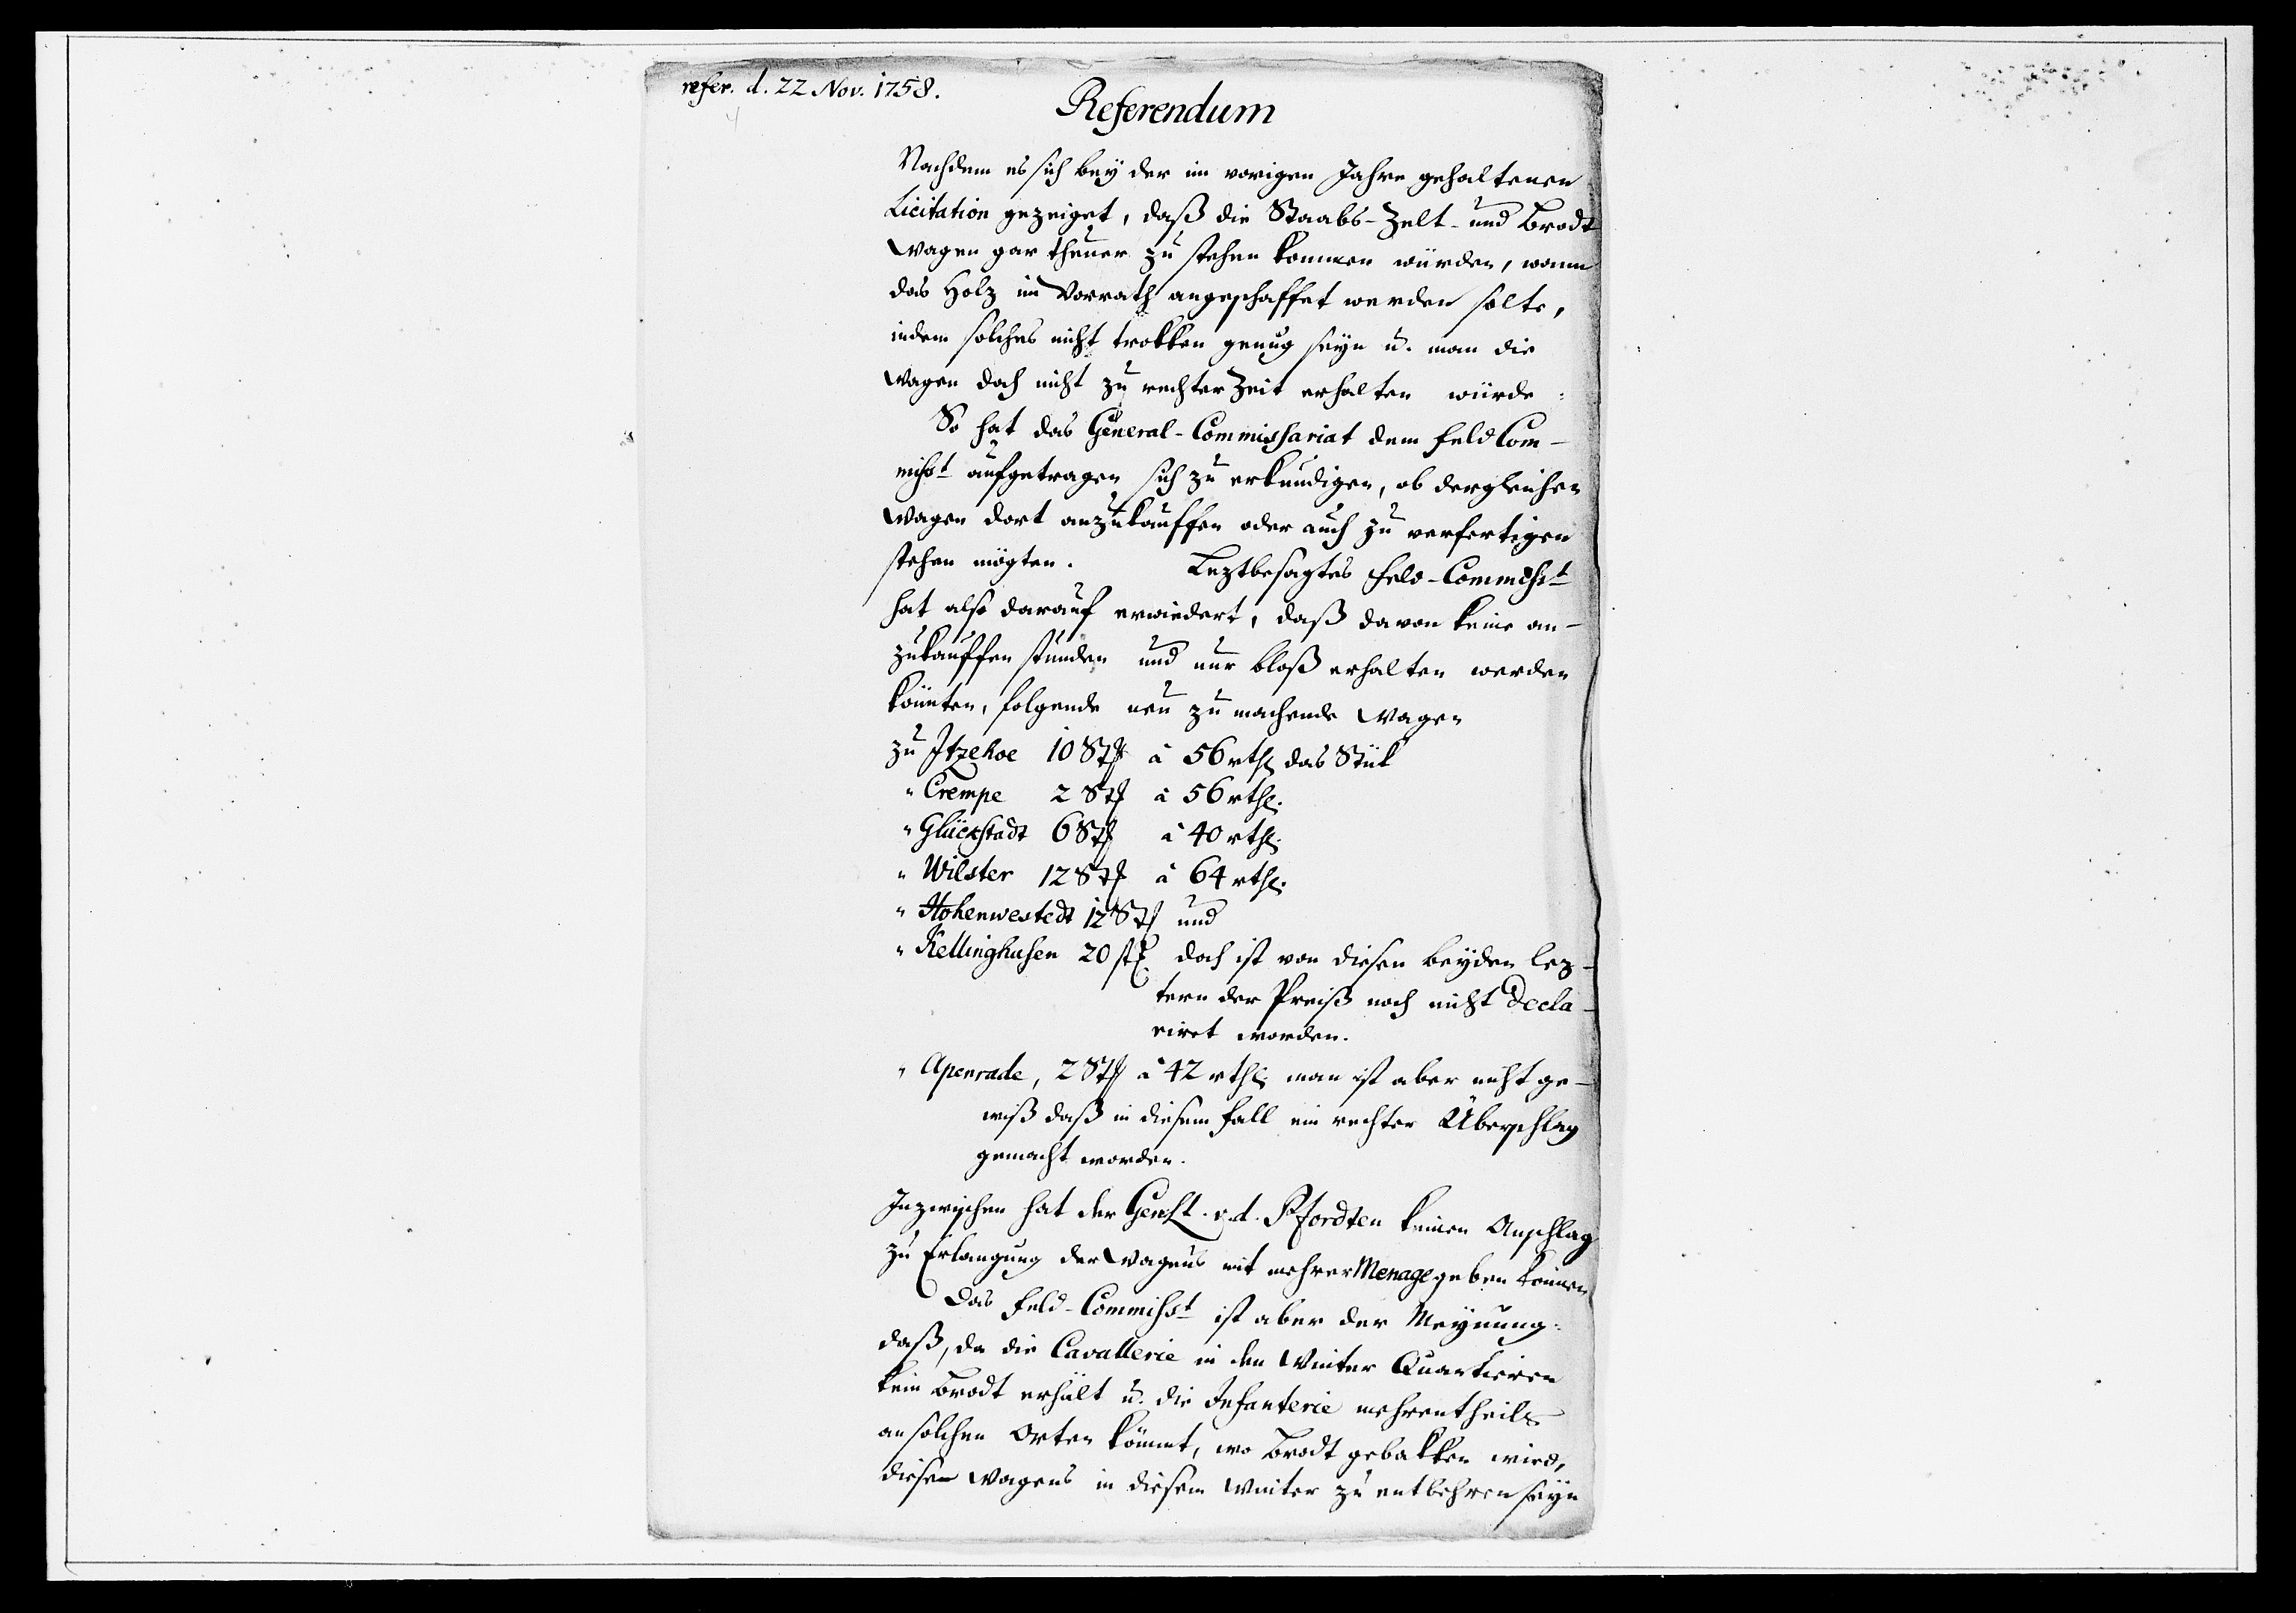 refer. d. 22 Nov. 1758.
Referendum
Nachdem es sich beÿ der im vorigen Jahre gehaltenen
Licitation gezeiget, daß die Staabs-Zelt- und Brodt
Wagen gar theuer zu stehen kommen würden, wann
das Holz im Vorrath angeschaffet werden solte,
indem solches nicht trokken genug seÿn u. man die
Wagen doch nicht zu rechter Zeit erhalten würde:
So hat das General-Commissariat dem Feld Com-
misst aufgetragen sich zu erkundigen, ob dergleichen
Wagen dort anzukauffen oder auch zu verfertigen
stehen mögten. Leztbesagtes Feld-Commisst
hat also darauf erwiedert, daß davon keine an-
zukauffen stünden und nur bloß erhalten werden
könnten, folgende neu zu machende Wagen
zu Itzehoe 10 Stk à 56 rthl das Stük
" Crempe 2 Stk à 56 rthl.
" Glückstadt 6 Stk à 40 rthl.
" Wilster 12 Stk à 64 rthl.
" Hohenwestedt 12 Stk und
" Kellinghusen 20 stk doch ist von diesen beÿden lez-
tern der Preiß noch nicht decla-
riret worden.
" Apenrade, 2 Stk à 42 rthl. man ist aber nicht ge-
wiß daß in diesem Fall ein rechter Überschlag
gemacht worden.
Inzwischen hat der GenLt. v. d. Pfordten keinen Anschlag
zu Erlangung der Wagens mit mehrer Menage geben können
Das Feld-Commisst ist aber der Meÿnung:
daß, da die Cavallerie in den Winter Quartieren
kein Brodt erhält u. die Infanterie mehrentheils
an solchen Orten kömmt, wo Brodt gebakken wird,
diese Wagens in diesem Winter zu entbehren seÿn